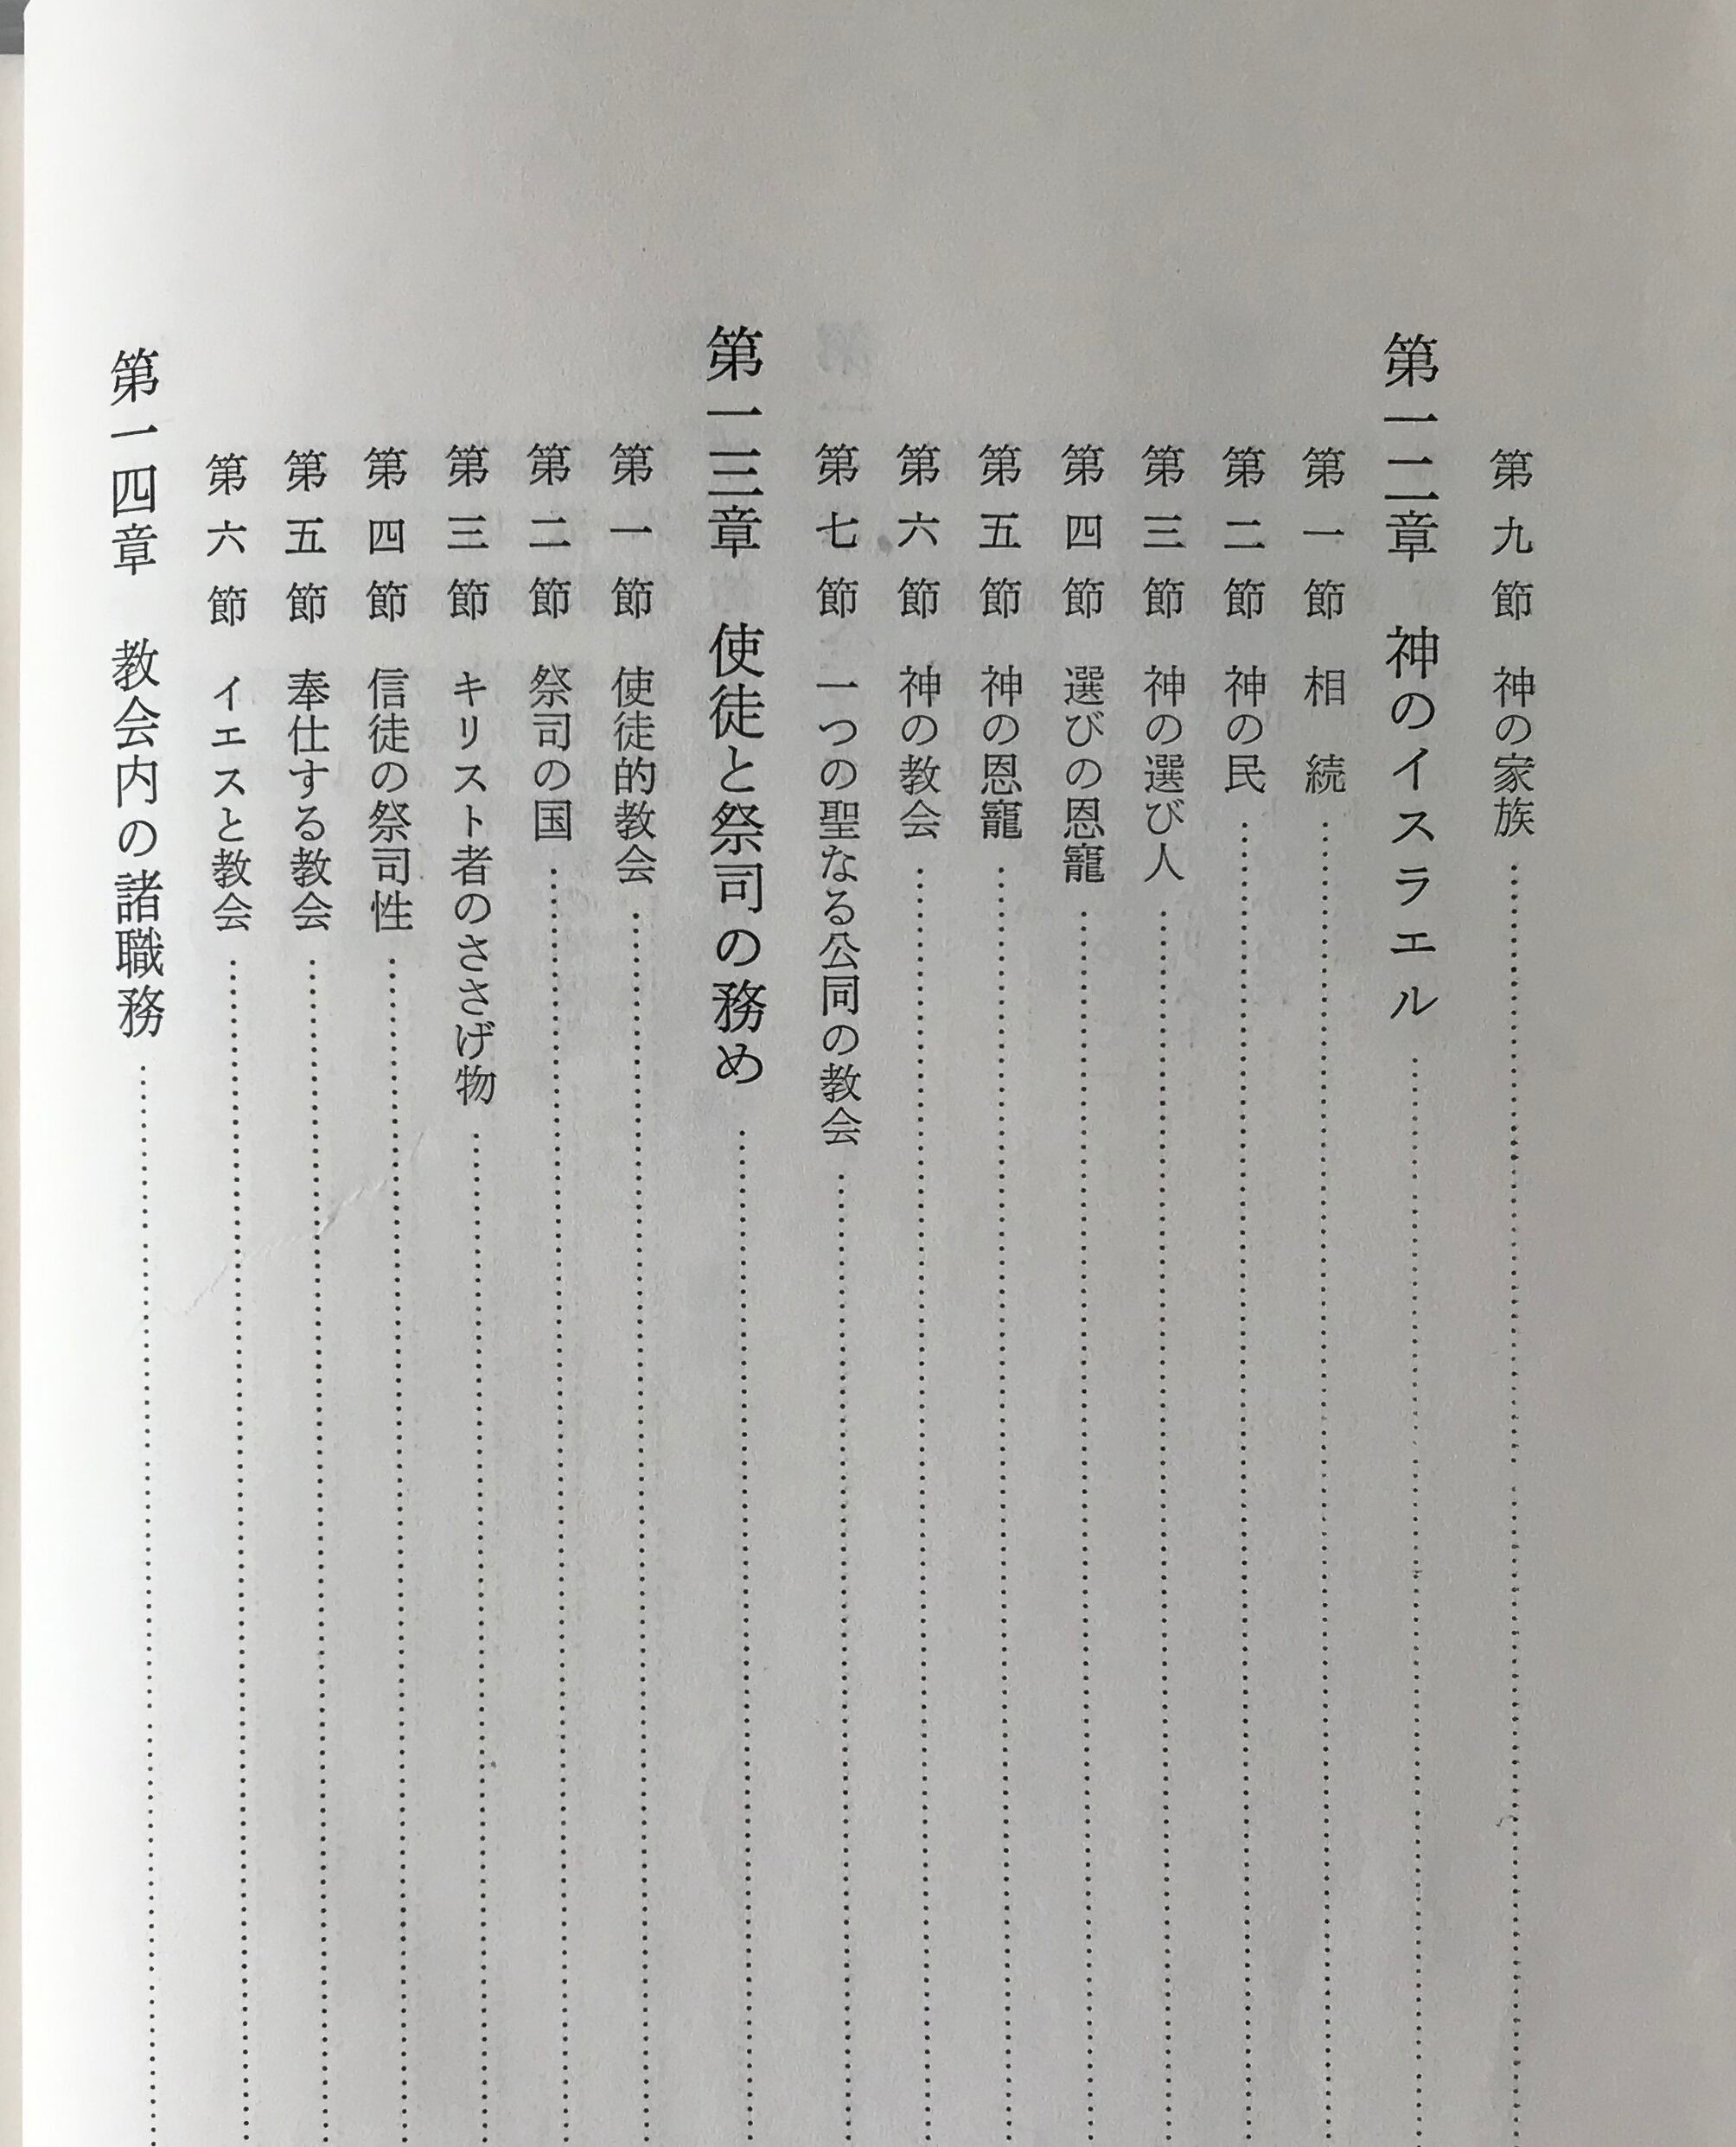 第九節　神の家族
第一二章　神のイスラエル
第一節　相　続
第二節　神の民
第三節　神の選び人
第四節　選びの恩寵
第五節　神の恩寵
第六節　神の教会
第七節　一つの聖なる公同の教会
第一三章　使徒と祭司の務め
第一節　使徒的教会
第二節　祭司の国
第三節　キリスト者のささげ物
第四節　信徒の祭司性
第五節　奉仕する教会
第六節　イエスと教会
第一四章　教会内の諸職務